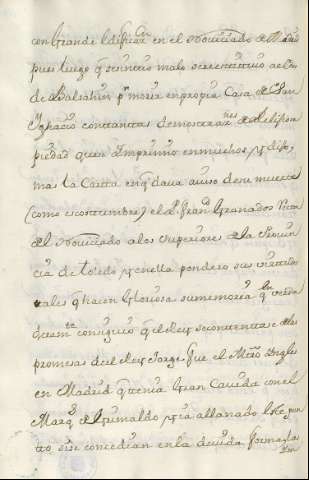 con Grande Edificaz.on en el Noviciado de Madrid
pues luego q.e se sintio malo se restituio a el
de Balsahin p.a morir en propria Casa de S.n
Ygnacio con tantas demostraz.nes de Religion
piedad que se Ymprimio en muchos, y dife
mas la Carta en q.e dava aviso de su muerte
(como es costumbre) el P. Fran.co Granados Retor
del Noviciado a los Superiores de la Provin
cia de toledo y en ella pondero sus virtudes
tales q.e hacen Gloriosa su memoria, q.e
consiguio q.e el Rey se contentase de las
promesas del Rey Jorge. fue el Mro Yngles
en Madrid q.e tenia Gran Cavida con el
Marq.s de Grimaldo y se a allanado los pun
tos, si se concedian en la devida forma, las